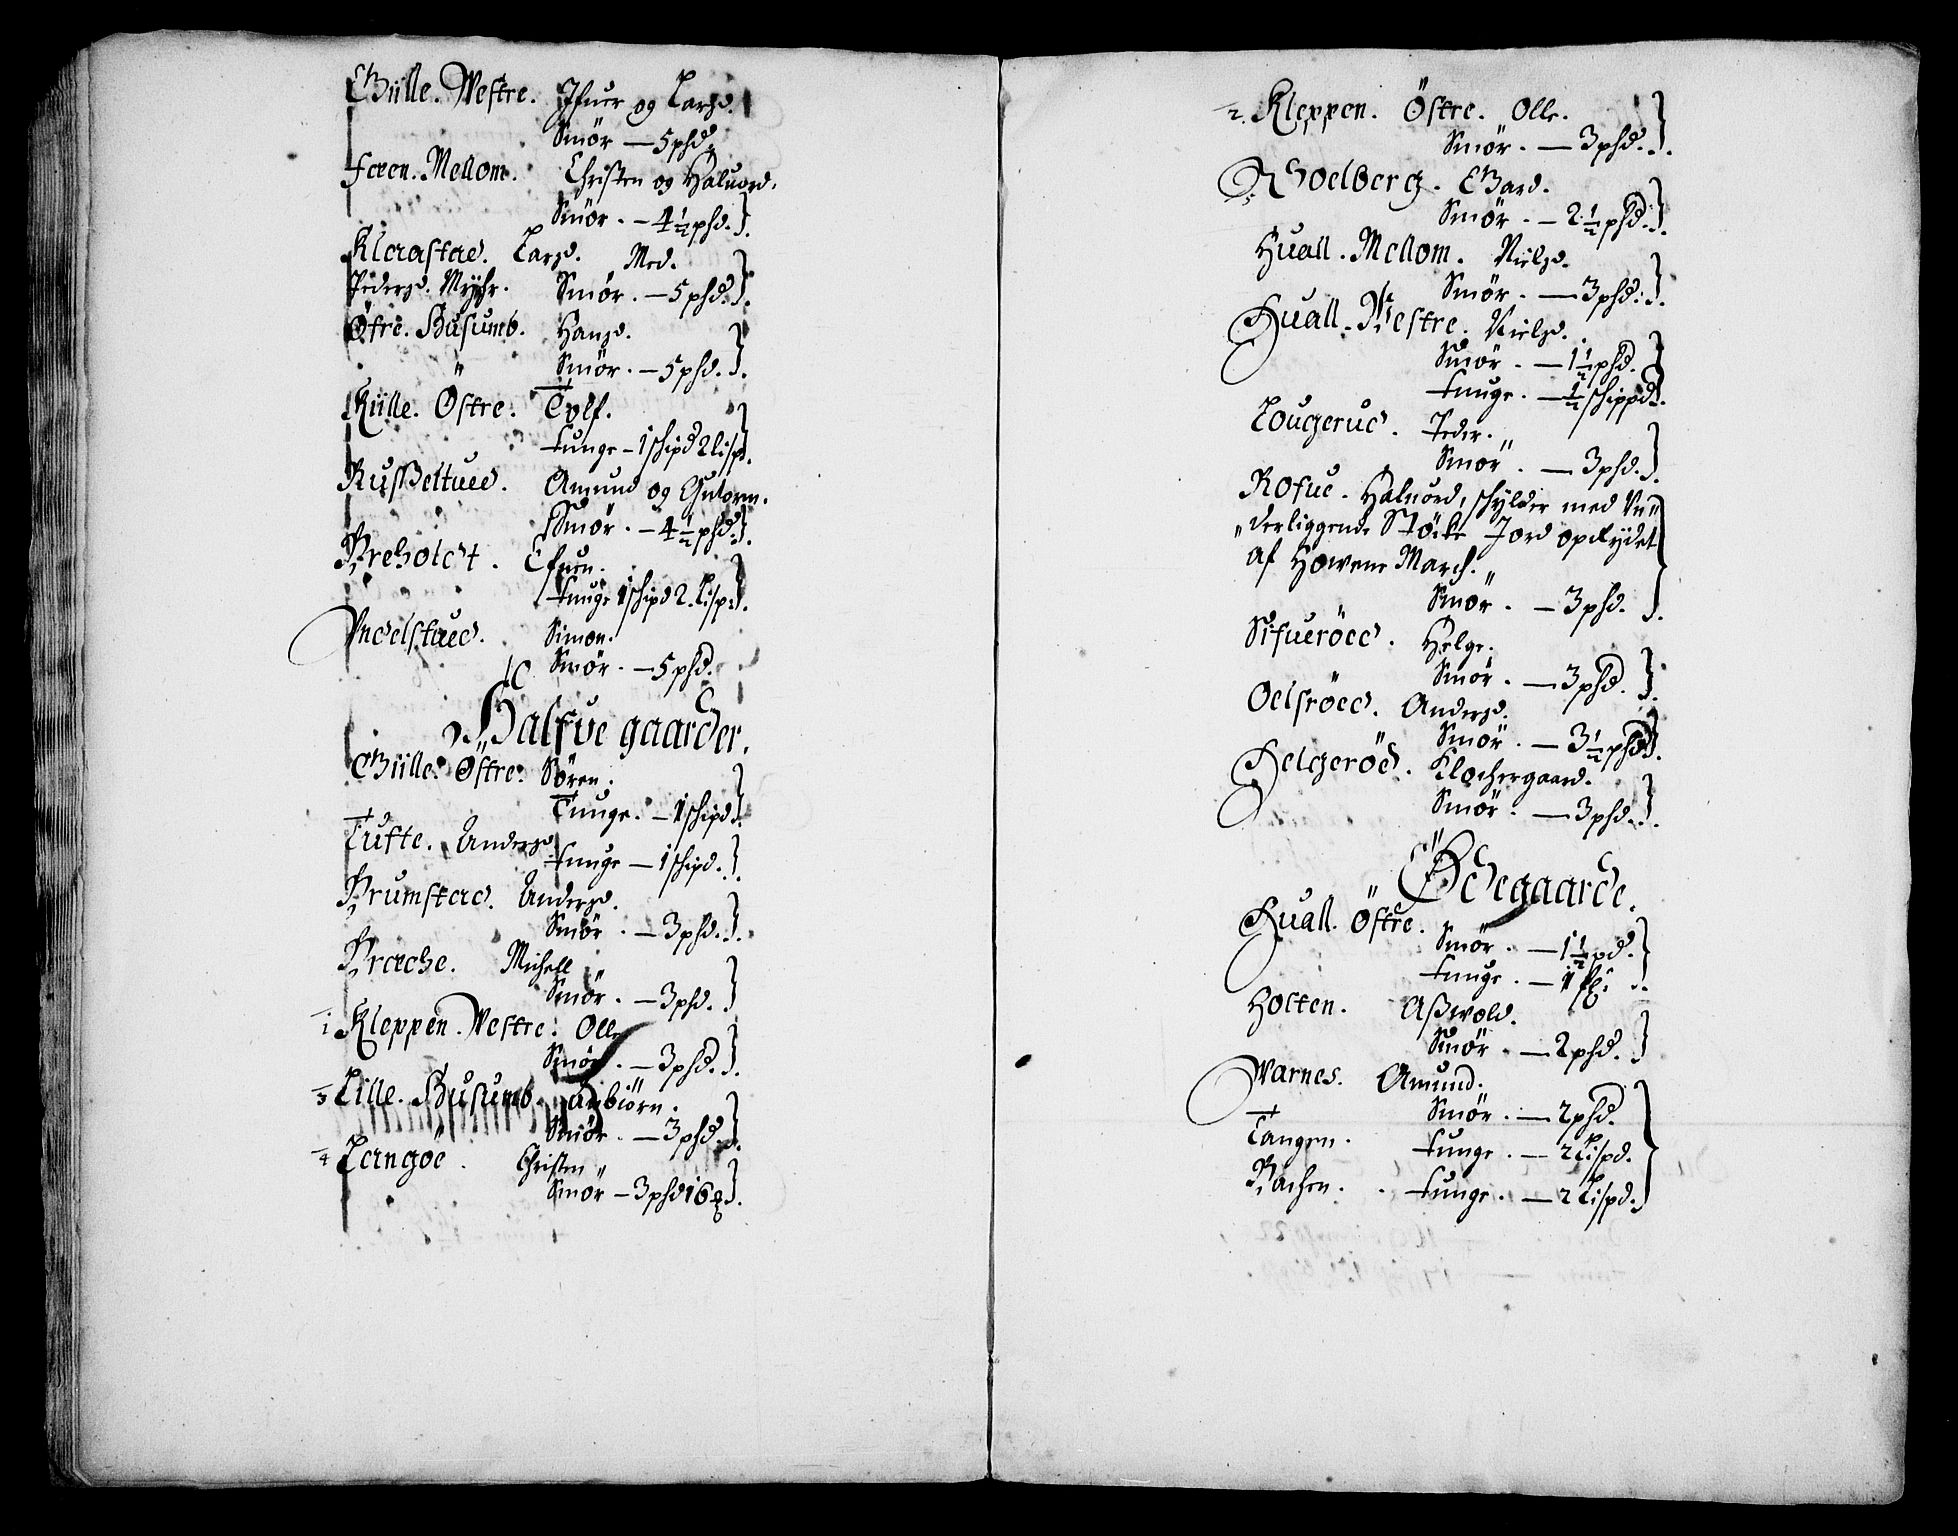 Biille. Westre. Ifuer og Larsz.
Smör — 5 phd.
Feren. Mellom. Christen og Haluord.
Smör. — 4½ phd.
Klerastad. Larsz. Med.
Pedersz. Myhr. Smör. — 5 phd.
Öfre. Busumb. Hansz.
Smör. — 5 phd.
Kiille. Östre. Tolf.
Tunge — 1 schipd 2 lisp.
Rusßeltued. Amund og Gutorm.
Smör. — 4½ phd.
Preholdt. Efuen.
Tunge 1 schipd 2. Lisp.
Undelstued. Simon.
Smör. — 5 phd.
Halfve gaarder.
Biille. Östre. Sören.
Tunge. — 1 schipd.
Tufte. Andersz.
Tunge — 1 schipd.
Prumstad. Andersz.
Smör. — 3 phd.
Præche. Michell.
Smör. — 3 phd.
1 Kleppen. Westre. Olle
Smör. — 3 phd.
3 Lille. Busumb. Anbiörn.
Smör. — 3 phd.
4 Langöe. Christen
Smör — 3 phd 16
2. Kleppen. Östre. Olle.
Smör. — 3 phd.
Rholberg. Bard.
Smör. — 2½ phd.
Huall. Mellom. Nielsz.
Smör. — 3 phd.
Huall. Westre. Nielsz.
Smör. — 1½ phd.
Tunge. — ½ schippd.
Lougerud. Peder.
Smör. — 3 phd.
Rofue. Haluord, schylder med Un„
„derliggende Støcke Jord opRydet
af Howene March.
Smör. — 3 phd.
Sifueröed. Helge.
Smör. — 3 phd.
Oelsröed. Andersz.
Smör. — 3½ phd.
Helgeröd. Klochergaard.
Smör. — 3 phd.
Ödegaarde.
Huall. Östre.
Smör. — 1½ pd.
Tunge. — 1
Holten. Aßwold.
Smör. — 2 phd.
Warnes. Amund.
Smör. — 2 phd.
Tangen. Tunge. — 2 Lispd.
Bachen. Tunge. — 2 Lispd.